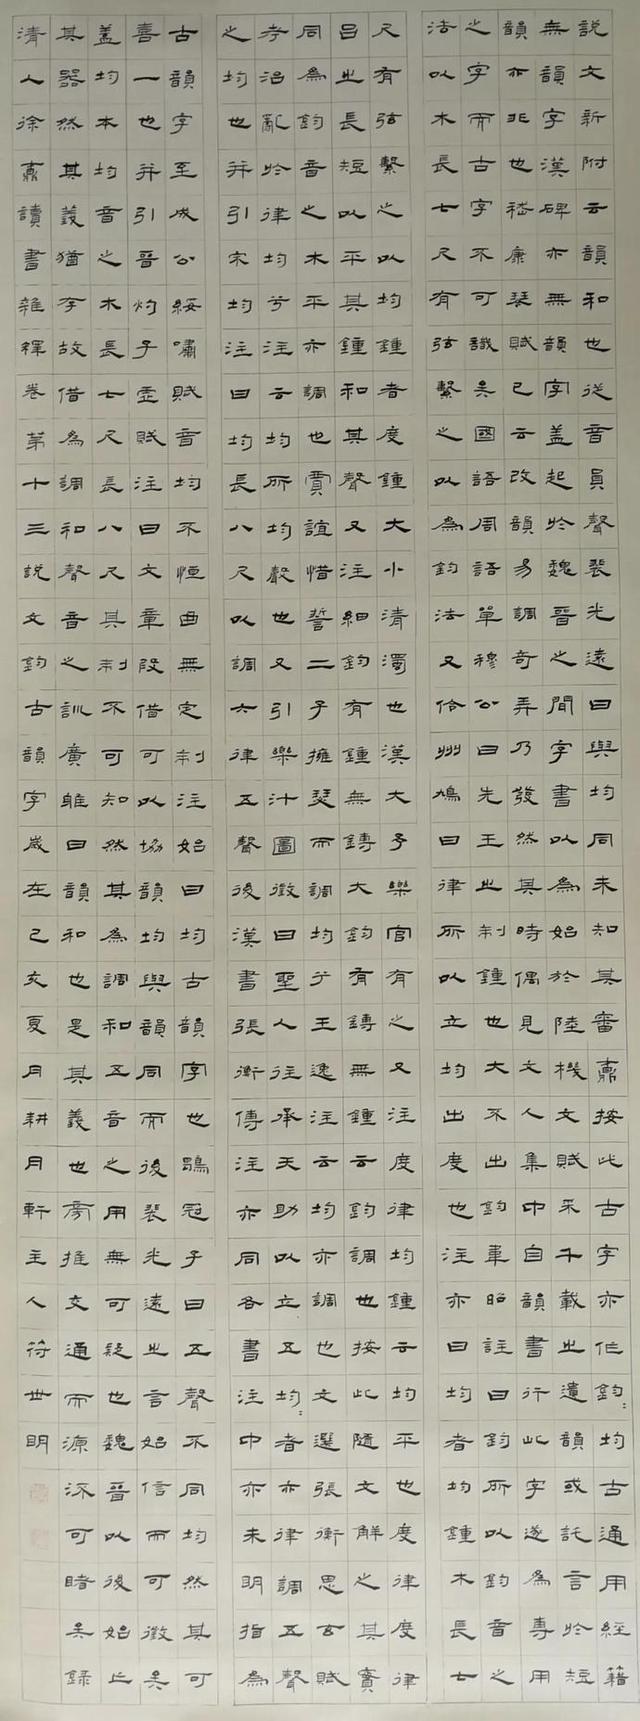 說文新附云韻和也從音員聲裴光遠曰與均同未知其審鼒按此古字亦作鈞:均古通用經籍
無韻字漢碑亦無韻字蓋起於魏晉之間字書以為始於陸機文賦采千載之遺韻或託言於短
韻亦非也嵇康琴賦已云改韻易調奇弄乃發然其時偶見文人集中自韻書行此字遂為專用
之字而古字不可識矣國語周語單穆公曰先王之制鍾也大不出鈞韋昭註曰鈞所以鈞音之
法以木長七尺有弦繫之以為鈞法又伶州鳩曰律所以立均出度也注亦曰均者均鍾木長七
尺有弦繫之以均鍾者度鍾大小清濁也漢大予樂官有之又注度律均鍾云均平也度律度律
呂之長短以平其鍾和其聲又注細鈞有鍾無鏄大鈞有鏄無鍾云鈞調也按此隨文解之其實
同為鈞音之木平亦調也賈誼惜誓二子擁瑟而調均兮王逸注云均亦調也文選張衡思玄賦
考治亂於律均兮注云均所均聲也又引樂汁圖徵曰聖人往承天助以立五均:者亦律調五聲
之均也并引宋均注曰均長八尺以調六律五聲後漢書張衡傳注亦同各書注中亦未明指為
古韻字至成公綏嘯賦音均不恒曲無定制注始曰均古韻字也鶡冠子曰五聲不同均然其可
喜一也并引晉灼子虛賦注曰文章叚借可以協韻均與韻同而後裴光遠之言始信而可徵矣
蓋均本均音之木長七尺長八尺其制不可知然其為調和五音之用無可疑也魏晉以後始亡
其器然其義猶存故借為調和聲音之訓廣雅曰韻和也是其義也旁推交通而源泝可睹矣錄
清人徐鼒讀書雜釋卷第十三說文鈞古韻字歲在己亥夏月耕月軒主人符世明